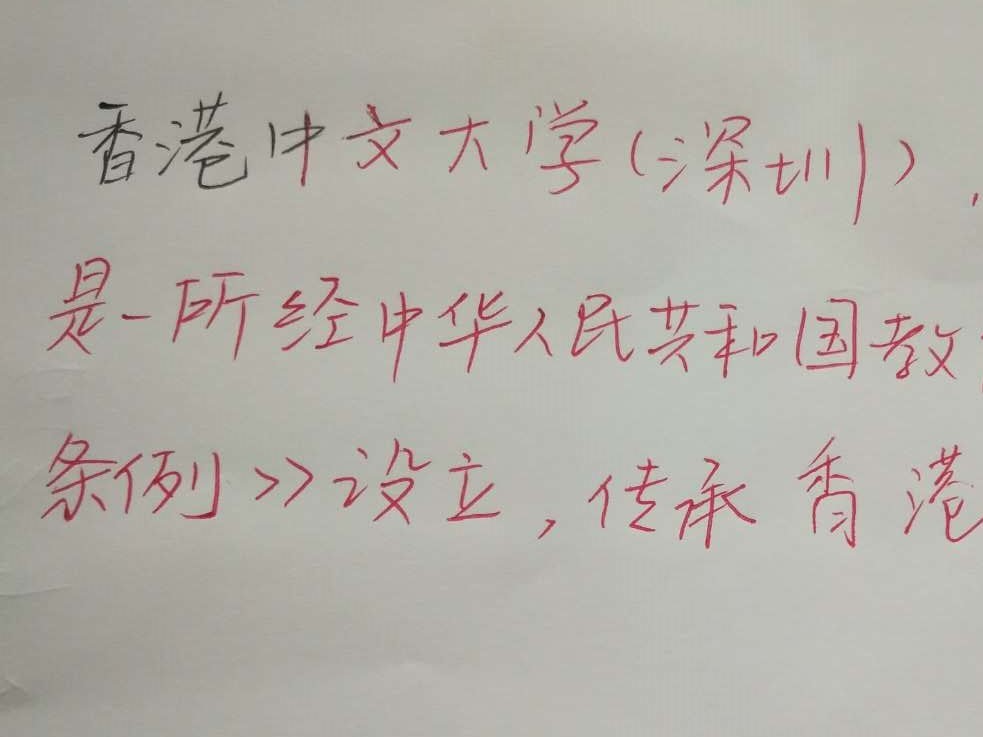 香港中文大学(深圳),
是一所经中华人民共和国教
条例>>设立,传承香港